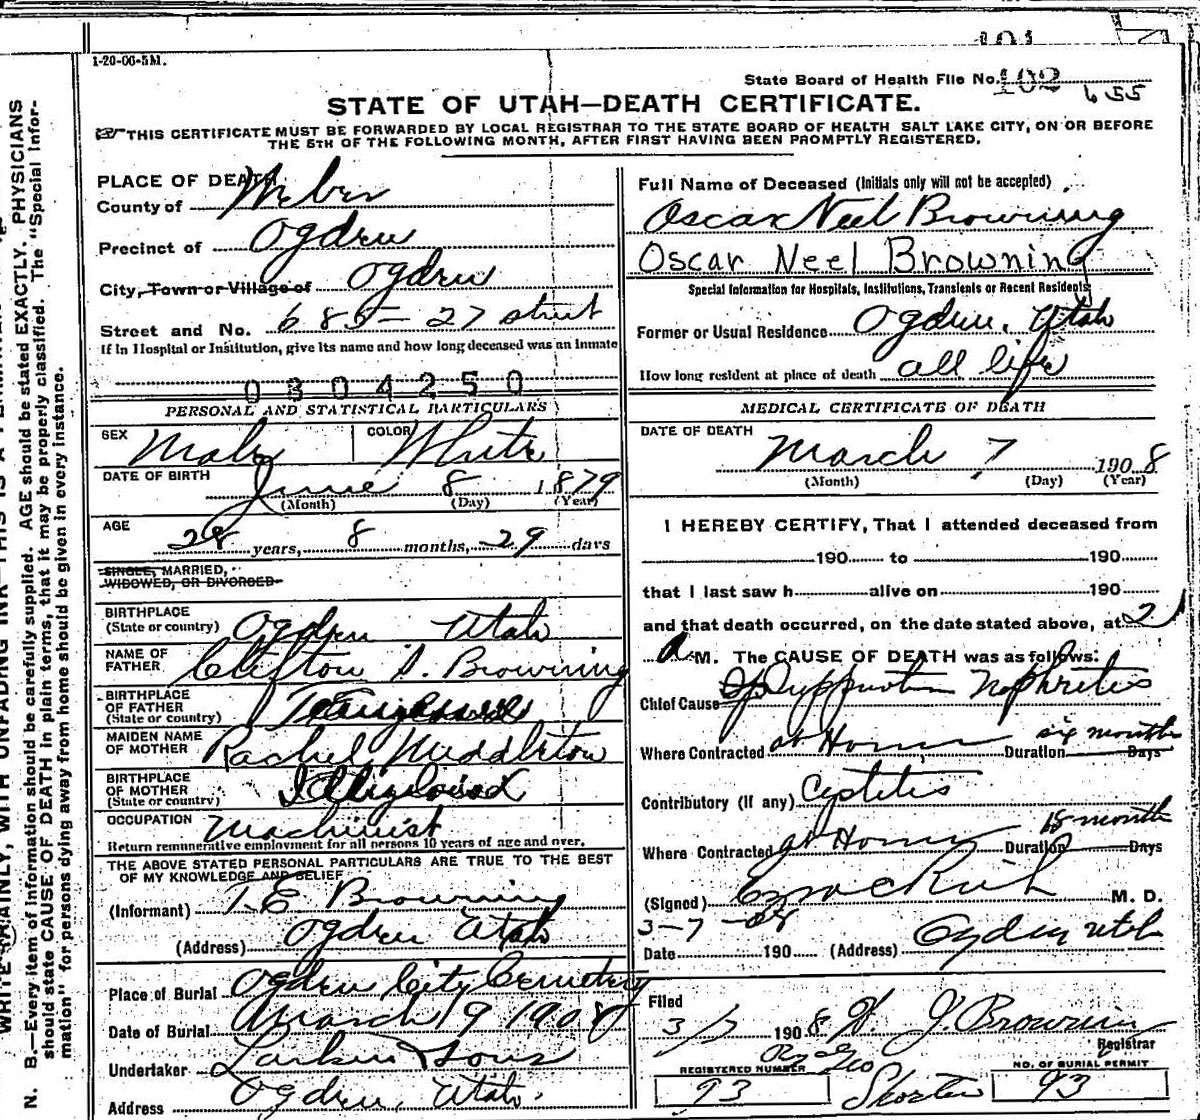 1-20-06-5M.
State Board of Health File No. 102
655
STATE OF UTAH—DEATH CERTIFICATE.
THIS CERTIFICATE MUST BE FORWARDED BY LOCAL REGISTRAR TO THE STATE BOARD OF HEALTH SALT LAKE CITY, ON OR BEFORE
THE 5TH OF THE FOLLOWING MONTH, AFTER FIRST HAVING BEEN PROMPTLY REGISTERED.
PLACE OF DEATH
County of Weber
Precinct of Ogden
City, Town or Village of Ogden
Street and No. 685 - 27 street
If in Hospital or Institution, give its name and how long deceased was an inmate
0304250
PERSONAL AND STATISTICAL PARTICULARS
SEX Male COLOR White
DATE OF BIRTH June 8 1879
(Month) (Day) (Year)
AGE
28 years, 8 months, 29 days
SINGLE, MARRIED,
WIDOWED, OR DIVORCED
BIRTHPLACE
(State or country) Ogden Utah
NAME OF
FATHER Clifton S. Browning
BIRTHPLACE
OF FATHER
(State or country)
MAIDEN NAME
OF MOTHER Rachel Middleton
BIRTHPLACE
OF MOTHER
(State or country)
OCCUPATION Machinist
Return remunerative employment for all persons 10 years of age and over.
THE ABOVE STATED PERSONAL PARTICULARS ARE TRUE TO THE BEST
OF MY KNOWLEDGE AND BELIEF
(Informant) T. E. Browning
(Address) Ogden Utah
Place of Burial Ogden City Cemetery
Date of Burial March 9 1908
Undertaker Larkin & Sons
Address Ogden, Utah.
Full Name of Deceased (Initials only will not be accepted)
Oscar Neel Browning
Oscar Neel Browning
Special Information for Hospitals, Institutions, Transients or Recent Residents
Former or Usual Residence Ogden, Utah
How long resident at place of death all life
MEDICAL CERTIFICATE OF DEATH
DATE OF DEATH
March 7 1908
(Month) (Day) (Year)
I HEREBY CERTIFY, That I attended deceased from
190 to 190
that I last saw h alive on 190
and that death occurred, on the date stated above, at 2
a M. The CAUSE OF DEATH was as follows:
Chief Cause Nephritis
Where Contracted at Home Duration six months Days
Contributory (If any) Cystitis
Where Contracted at Home Duration 18 month Days
(Signed) M. D.
3-7-08
Date 190 (Address) Ogden Utah
Filed
3/7 1908 W. J. Browning
Registrar
REGISTERED NUMBER
93
Geo Shorten
NO. OF BURIAL PERMIT
93
N. B.—Every item of information should be carefully supplied. AGE should be stated EXACTLY. PHYSICIANS
should state CAUSE OF DEATH in plain terms, that it may be properly classified. The "Special Infor-
mation" for persons dying away from home should be given in every instance.